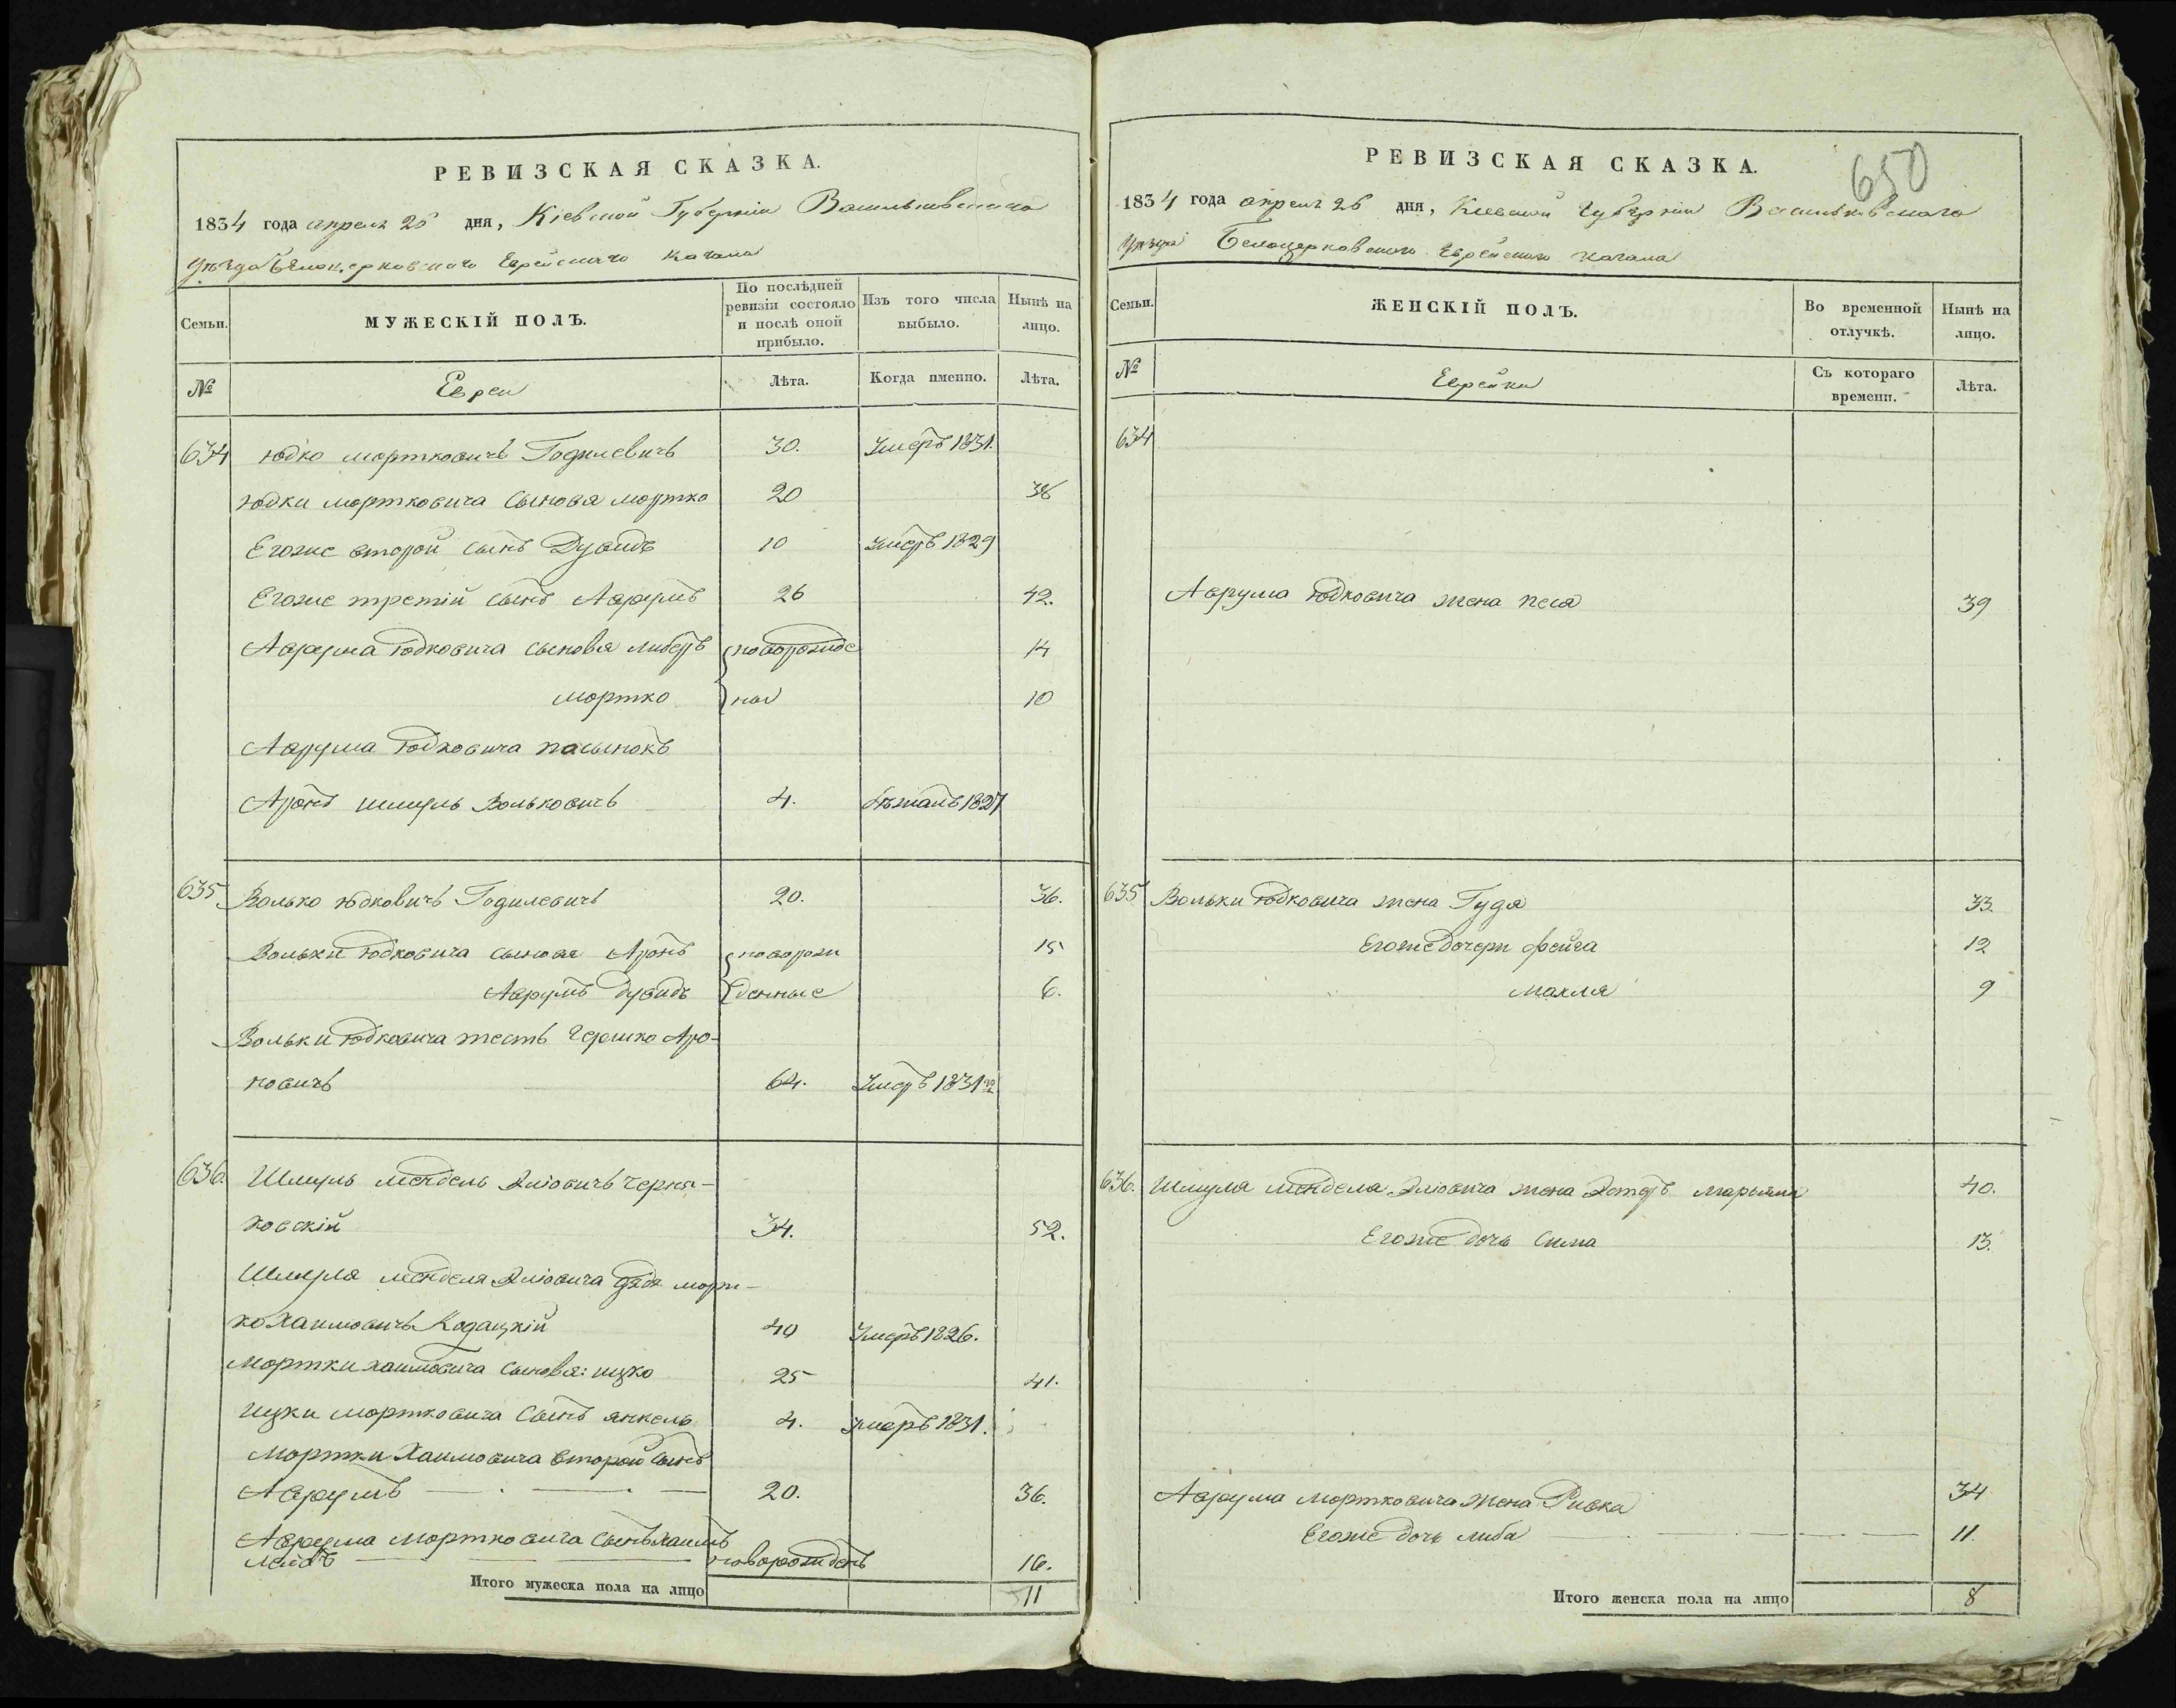 РЕВИЗСКАЯ СКАЗКА.
1834 года апреля 25 дня, Кіевской Губерніи Васильковскаго
Уѣзда Бѣлоцерковскаго Еврейскаго Кагала
Семьи.
МУЖЕСКІЙ ПОЛЪ.
По послѣдней ревизіи состояло и послѣ оной прибыло.
Изъ того числа выбыло.
Нынѣ на лицо.
№
Евреи
Лѣта.
Когда именно.
Лѣта.
634 Юдко Мортковичъ Годилевичъ 30. Умеръ 1831.
Юдки Мортковича сыновя Мортко 20 36
Егоже второй сынъ Дувидъ 10 Умеръ 1829
Егоже третій сынъ Аврумъ 26 42.
Аврума Юдковича сыновя Либеръ новорожде 14
Мортко ные 10
Аврума Юдковича пасынокъ
Аронъ Шмуль Вольковичъ 4. бѣжалъ 1827
635. Волько Юдковичъ Годилевичъ 20. 36.
Вольки Юдковича сыновя Аронъ новорож 15
Аврумъ Дувидъ денные 6.
Вольки Юдковича тесть Гершко Аро-
новичъ 64. Умеръ 1831 го
636. Шмуль Мендель Эліовичъ Черня-
ховскій 34. 52.
Шмуля Менделя Эліовича дядя Морт-
ко Хаимовичъ Кодацкій 40 Умеръ 1826.
Мортки Хаимовича сыновя: Ицко 25 41.
Ицки Мортковича сынъ Янкель 4. Умеръ 1831.
Мортки Хаимовича второй сынъ
Аврумъ 20. 36.
Аврума Мортковича сынъ Хаимъ
Лейбъ новорожденъ 16.
Итого мужеска пола на лицо 11
РЕВИЗСКАЯ СКАЗКА.
650
1834 года апреля 26 дня, Киевской Губерніи Васильковскаго
Уѣзда Белоцерковского Еврейского Кагала
Семьи.
ЖЕНСКІЙ ПОЛЪ.
Во временной отлучкѣ.
Нынѣ на лицо.
№
Еврейки
Съ котораго времени.
Лѣта.
634
Аврума Юдковича жена Песя 39
635 Вольки Юдковича жена Гудя 33
Егоже дочери Фейга 12
Махля 9
636. Шмуля Мендела Эліовича жена Эстеръ Марьямъ 40.
Егоже дочь Сима 13.
Аврума Мортковича жена Ривка 34
Егоже дочь Либа 11.
Итого женска пола на лицо 8